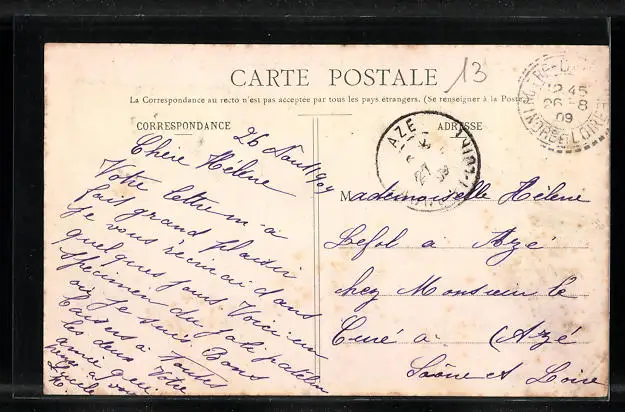 CARTE POSTALE
13
La Correspondance au recto n'est pas acceptée par tous les pays étrangers. (Se renseigner à la Poste
CORRESPONDANCE
ADRESSE
26 Août 1909
Chère Hélène
Votre lettre m'a
fait grand plaisir
Je vous écrirai dans
quelques jours Voici un
spécimen du joli patelin
où Je suis Bons
Baisers à Toutes
les deux Votre
amie qui
pense à vous
Lucile
AZE
27
12 45
26 -8
09
SAONE-ET-LOIRE
Mademoiselle Hélène
Lefol à Azé
chez Monsieur le
Curé à Azé
Saône et Loire